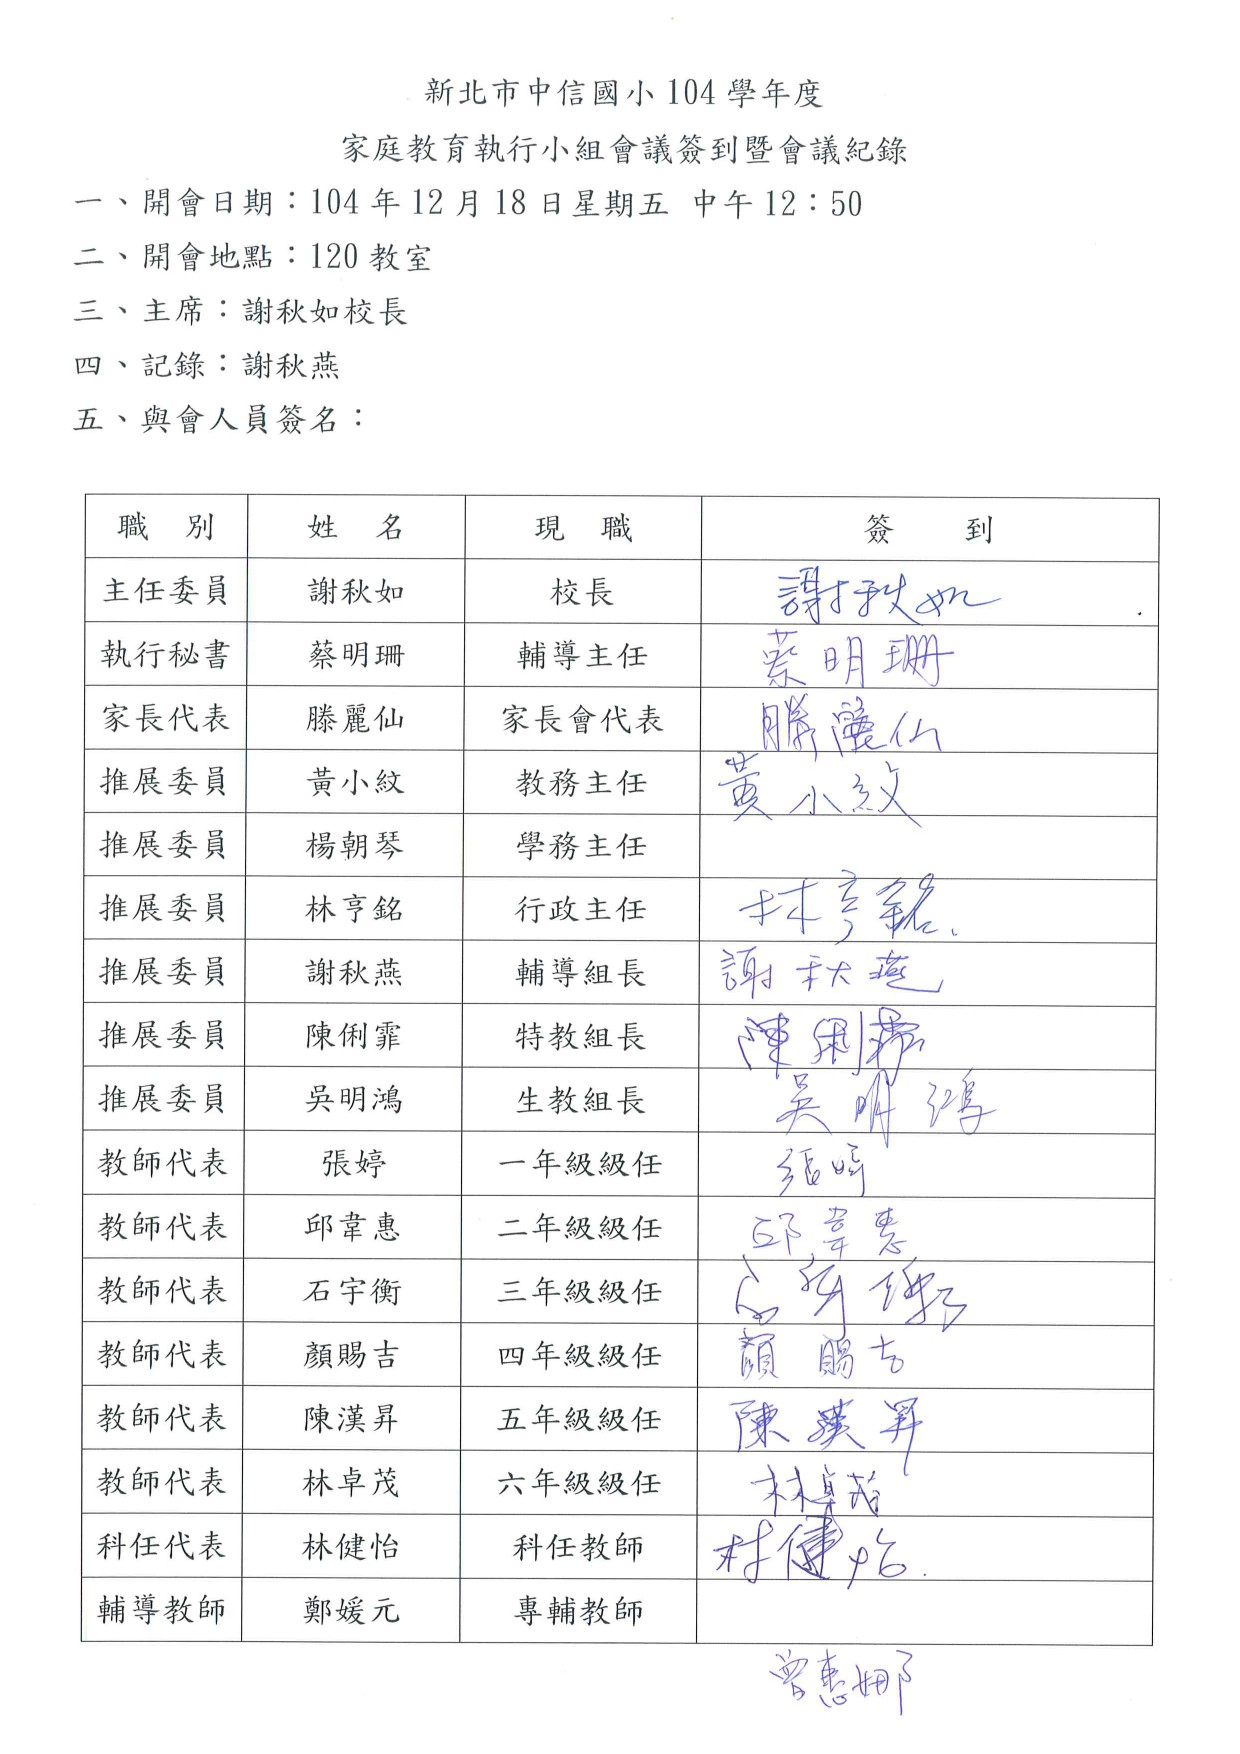 新北市中信國小104學年度
家庭教育執行小組會議簽到暨會議紀錄
一、開會日期：104年12月18日星期五 中午12：50
二、開會地點：120教室
三、主席：謝秋如校長
四、記錄：謝秋燕
五、與會人員簽名：
職 別 姓 名 現 職 簽 到
主任委員 謝秋如 校長 謝秋如
執行秘書 蔡明珊 輔導主任 蔡明珊
家長代表 滕麗仙 家長會代表 滕麗仙
推展委員 黃小紋 教務主任 黃小紋
推展委員 楊朝琴 學務主任
推展委員 林亨銘 行政主任 林亨銘.
推展委員 謝秋燕 輔導組長 謝秋燕
推展委員 陳俐霏 特教組長 陳俐霏
推展委員 吳明鴻 生教組長 吳明鴻
教師代表 張婷 一年級級任 張婷
教師代表 邱韋惠 二年級級任 邱韋惠
教師代表 石宇衡 三年級級任 石宇衡
教師代表 顏賜吉 四年級級任 顏賜吉
教師代表 陳漢昇 五年級級任 陳漢昇
教師代表 林卓茂 六年級級任 林卓茂
科任代表 林健怡 科任教師 林健怡.
輔導教師 鄭媛元 專輔教師
曾惠娜